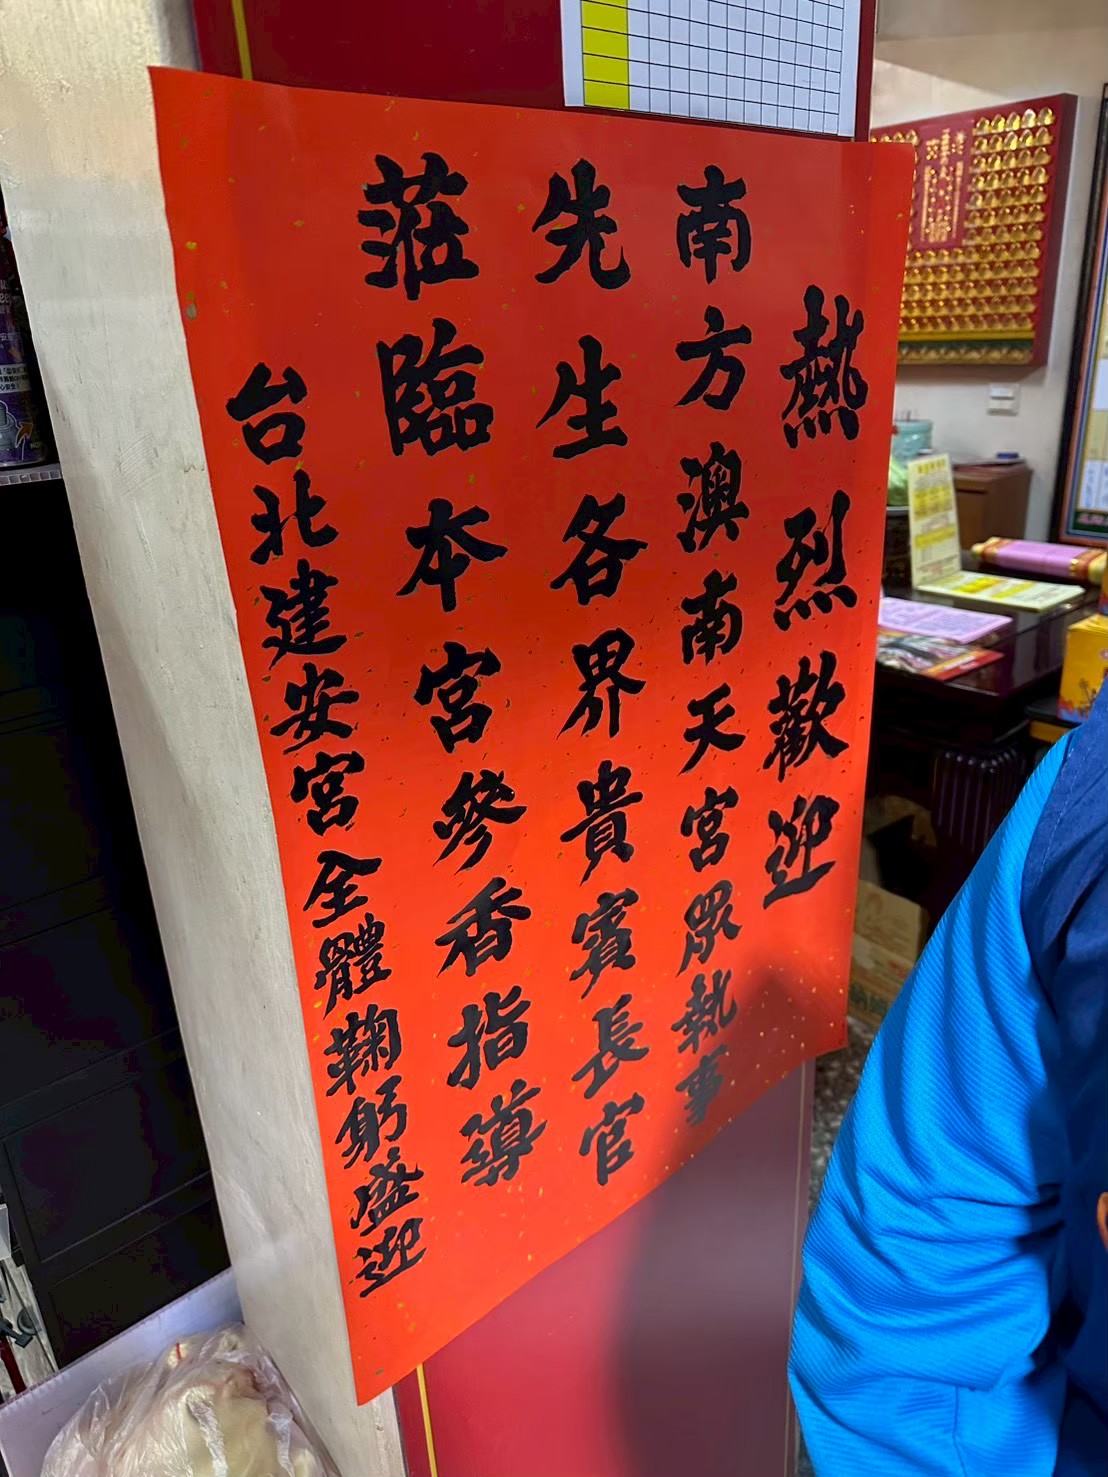 熱烈歡迎
南方澳南天宮眾執事
先生各界貴賓長官
蒞臨本宮參香指導
台北建安宮全體鞠躬盛迎